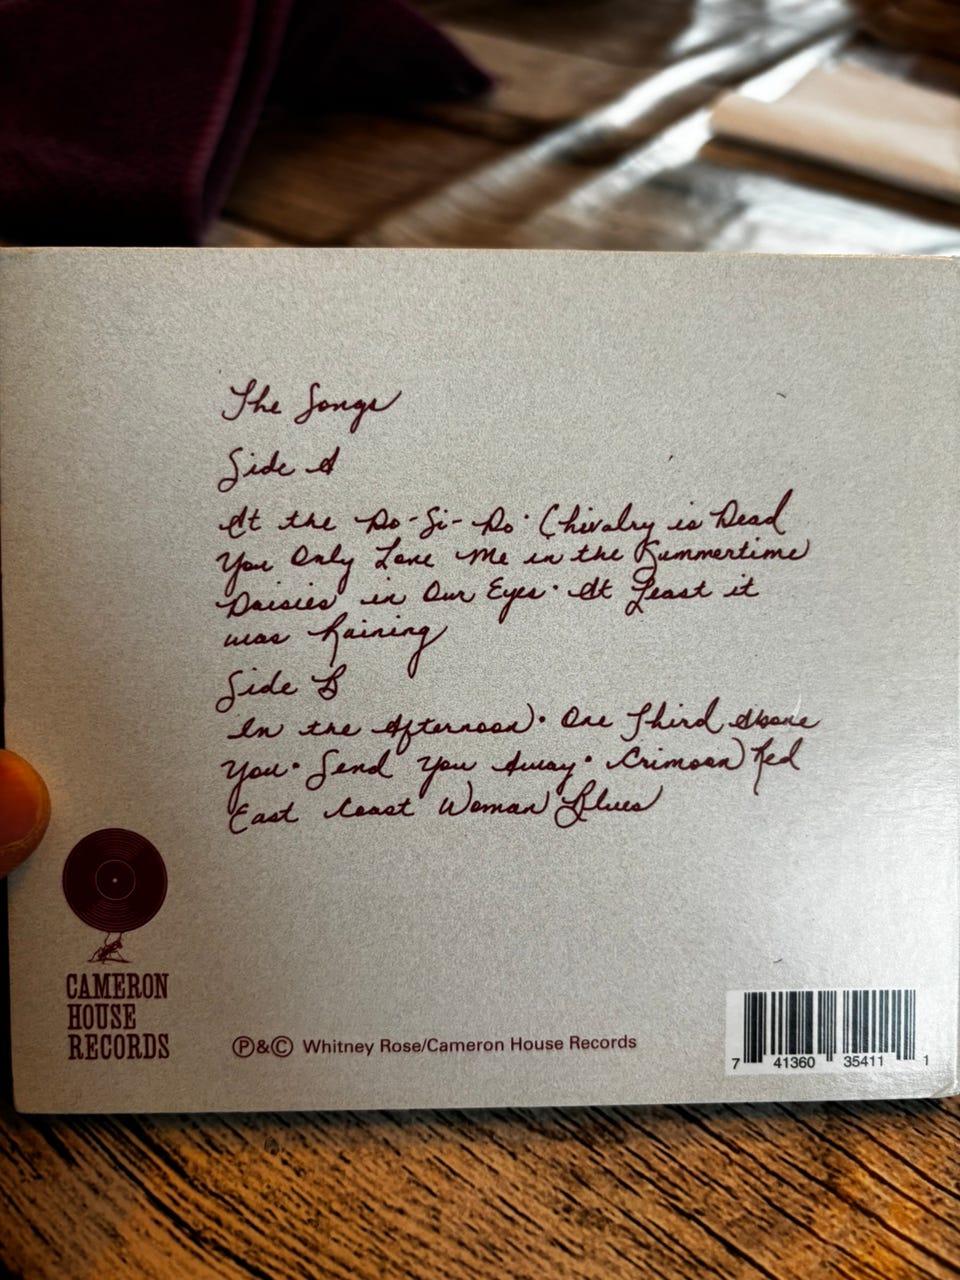 The Songs
Side A
At the Do-Si-Do · Chivalry is Dead
You Only Love Me in the Summertime
Daisies in Our Eyes · At Least it
was Raining
Side B
In the Afternoon · One Third Above
You · Send You Away · Crimson Red
East Coast Woman Blues
CAMERON
HOUSE
RECORDS
Ⓟ&© Whitney Rose/Cameron House Records
7 41360 35411 1